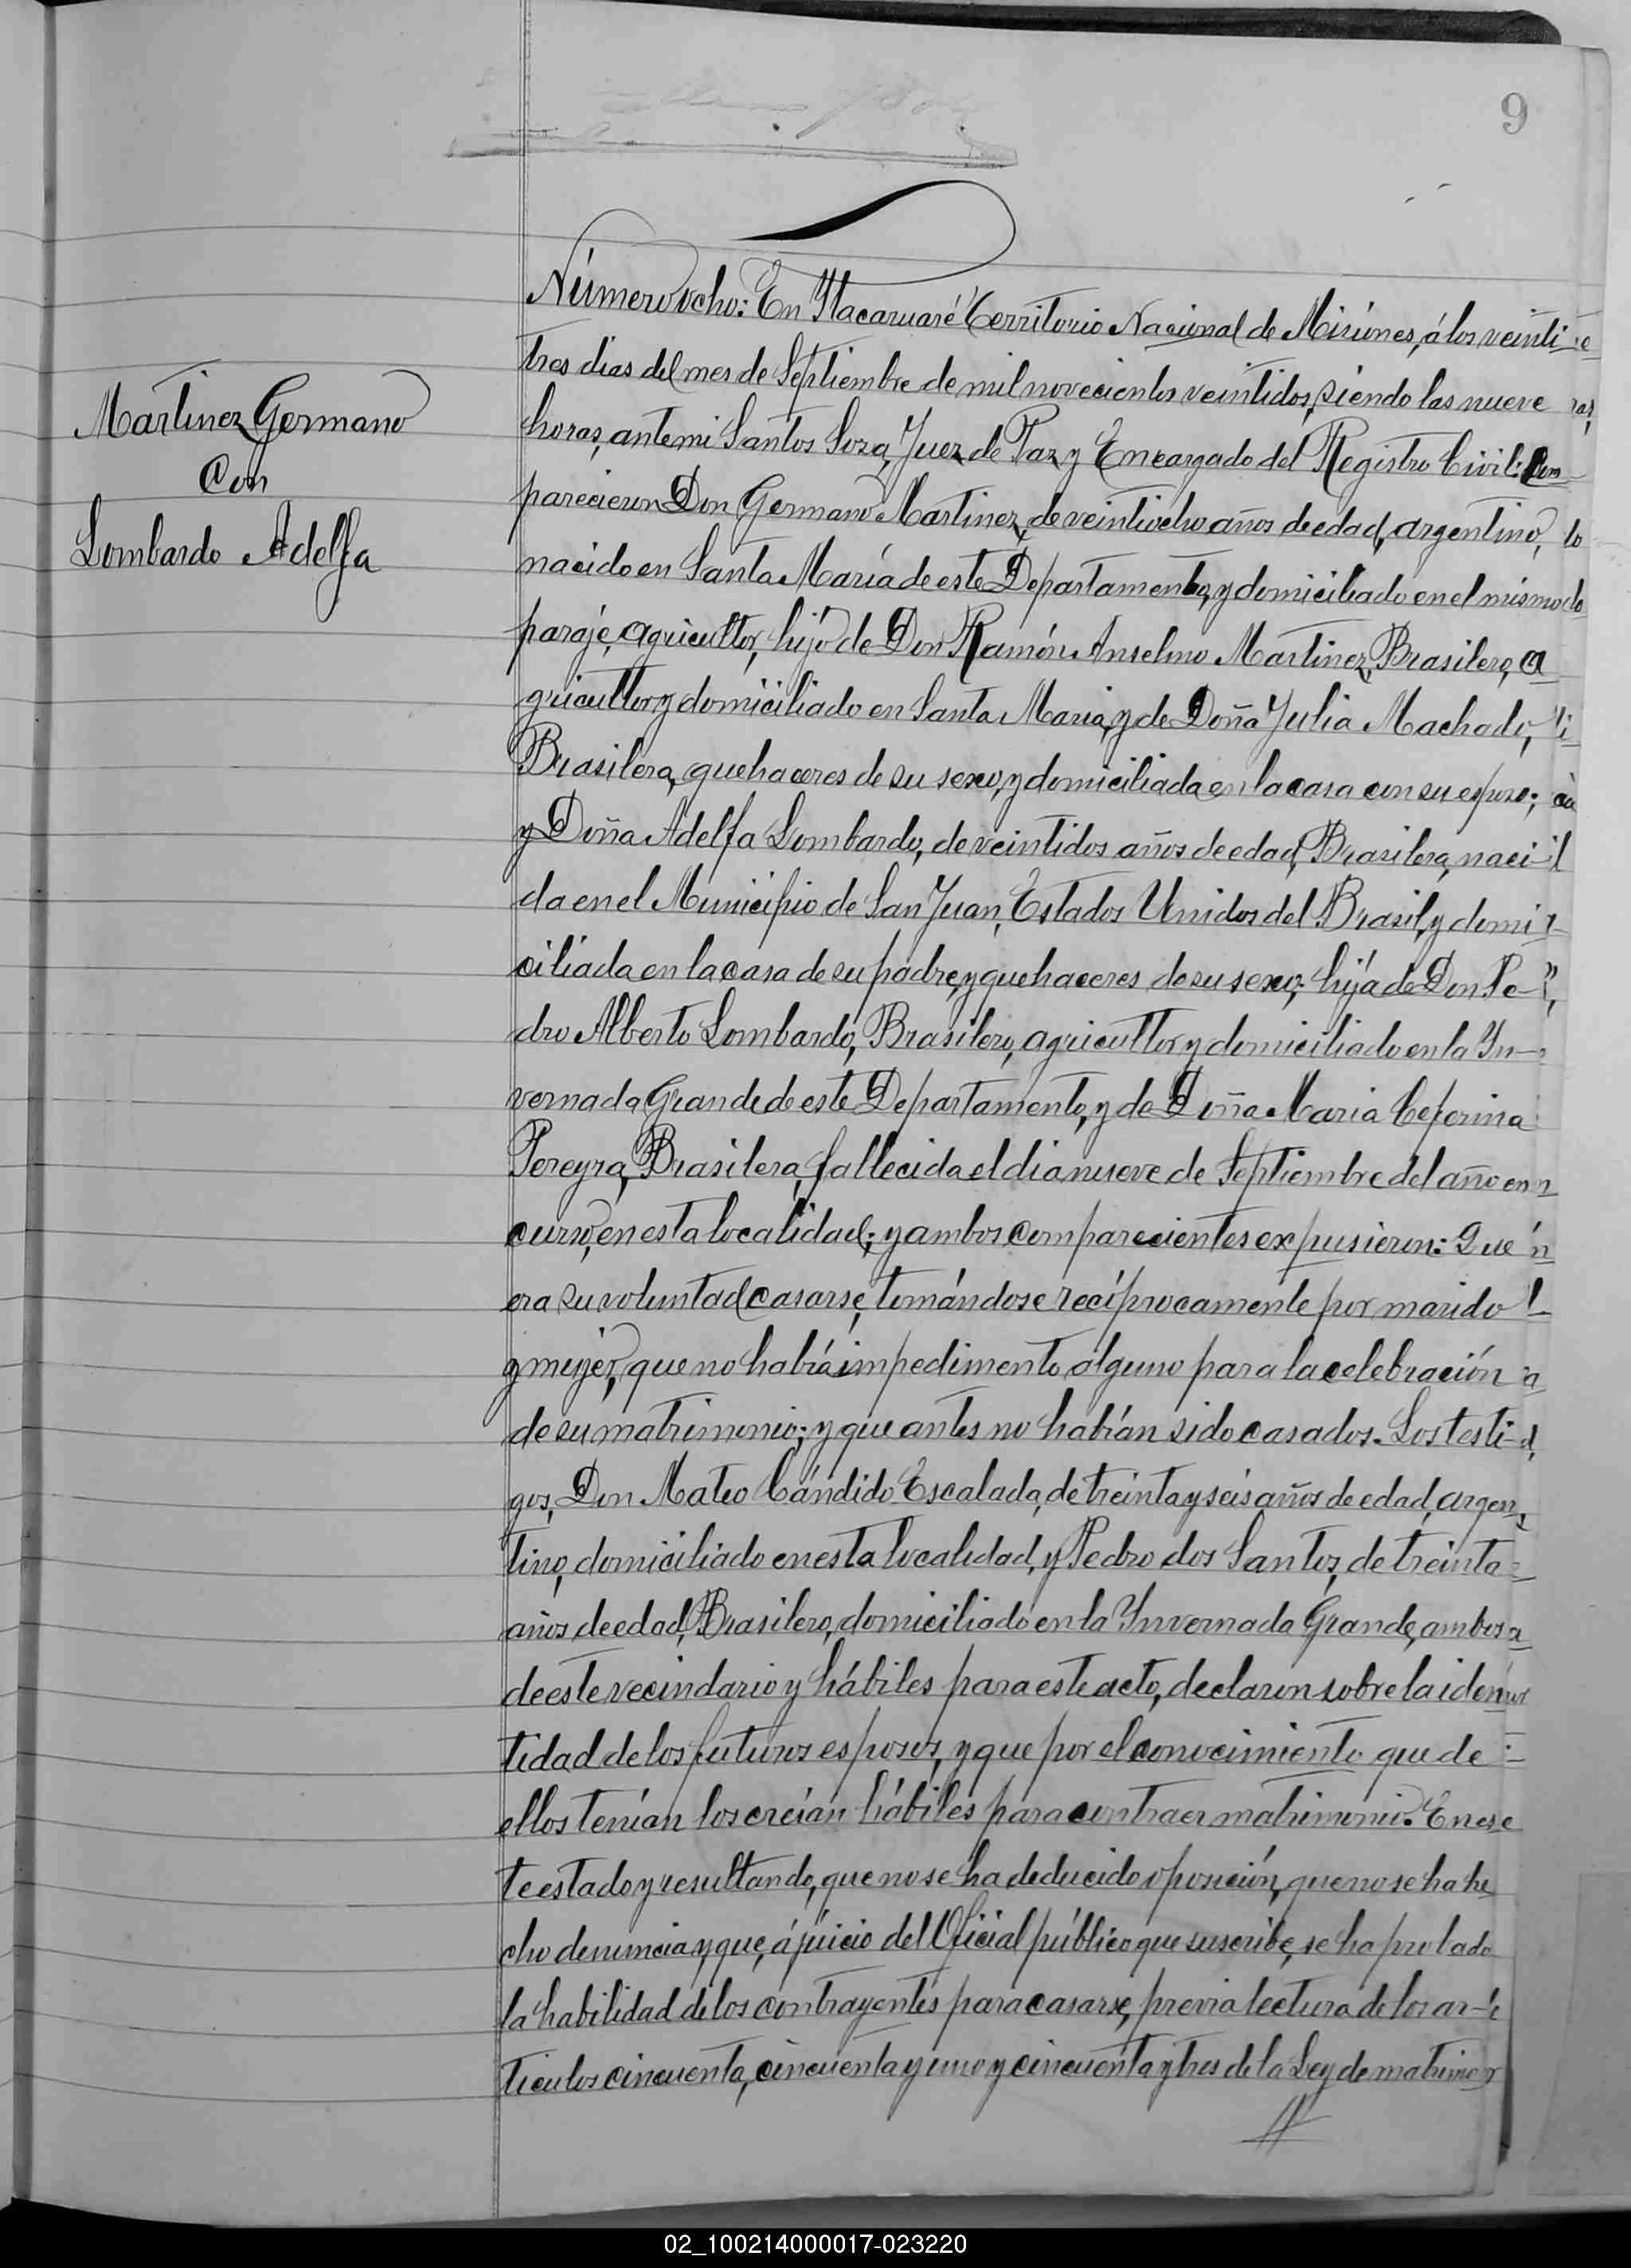 9
Martinez Germano
Con
Lombardo Adelfa
Número ocho: En Itacaruaré Territorio Nacional de Misiones, á los veinti
tres dias del mes de Septiembre de mil novecientos veintidos, siendo las nueve
horas, ante mi Santos Soza, Juez de Paz y Encargado del Registro Civil: Com
parecieron Don Germano Martinez, de veintiocho años de edad, argentino,
nacido en Santa María de este Departamento, y domiciliado en el mismo
paraje, agricultor, hijo de Don Ramón Anselmo Martinez, Brasilero, a
gricultor y domiciliado en Santa Maria, y de Doña Julia Machado,
Brasilera, quehaceres de su sexo, y domiciliada en la casa con su esposo;
y Doña Adelfa Lombardo, de veintidos años de edad, Brasilera, naci-
da en el Municipio de San Juan, Estados Unidos del Brasil, y domi
ciliada en la casa de su padre, y quehaceres de su sexo; hija de Don Pe-
dro Alberto Lombardo, Brasilero, agricultor y domiciliado en la Yn-
vernada Grande de este Departamento, y de Doña Maria Ceferina
Pereyra, Brasilera, fallecida el dia nueve de Septiembre del año en
curso, en esta localidad; y ambos comparecientes expusieron: Que
era su voluntad casarse, tomándose recíprocamente por marido
y mujer, que no había impedimento alguno para la celebración
de su matrimonio; y que antes no habían sido casados. Los testi-
gos, Don Mateo Cándido Escalada, de treinta y seis años de edad, argen
tino, domiciliado en esta localidad, y Pedro dos Santos, de treinta
años de edad, Brasilero, domiciliado en la Ynvernada Grande, ambos
de este vecindario y hábiles para este acto, declaron sobre la iden
tidad de los futuros esposos, y que por el conocimiento que de
ellos tenían los creían hábiles para contraer matrimonio. En es
te estado y resultando, que no se ha deducido oposición, que no se ha he
cho denuncia y que, á juicio del Oficial público que suscribe, se ha probado
la habilidad de los contrayentes para casarse, previa lectura de los ar-
tículos cincuenta, cincuenta y uno y cincuenta y tres de la Ley de matrimo
//
02_100214000017-023220